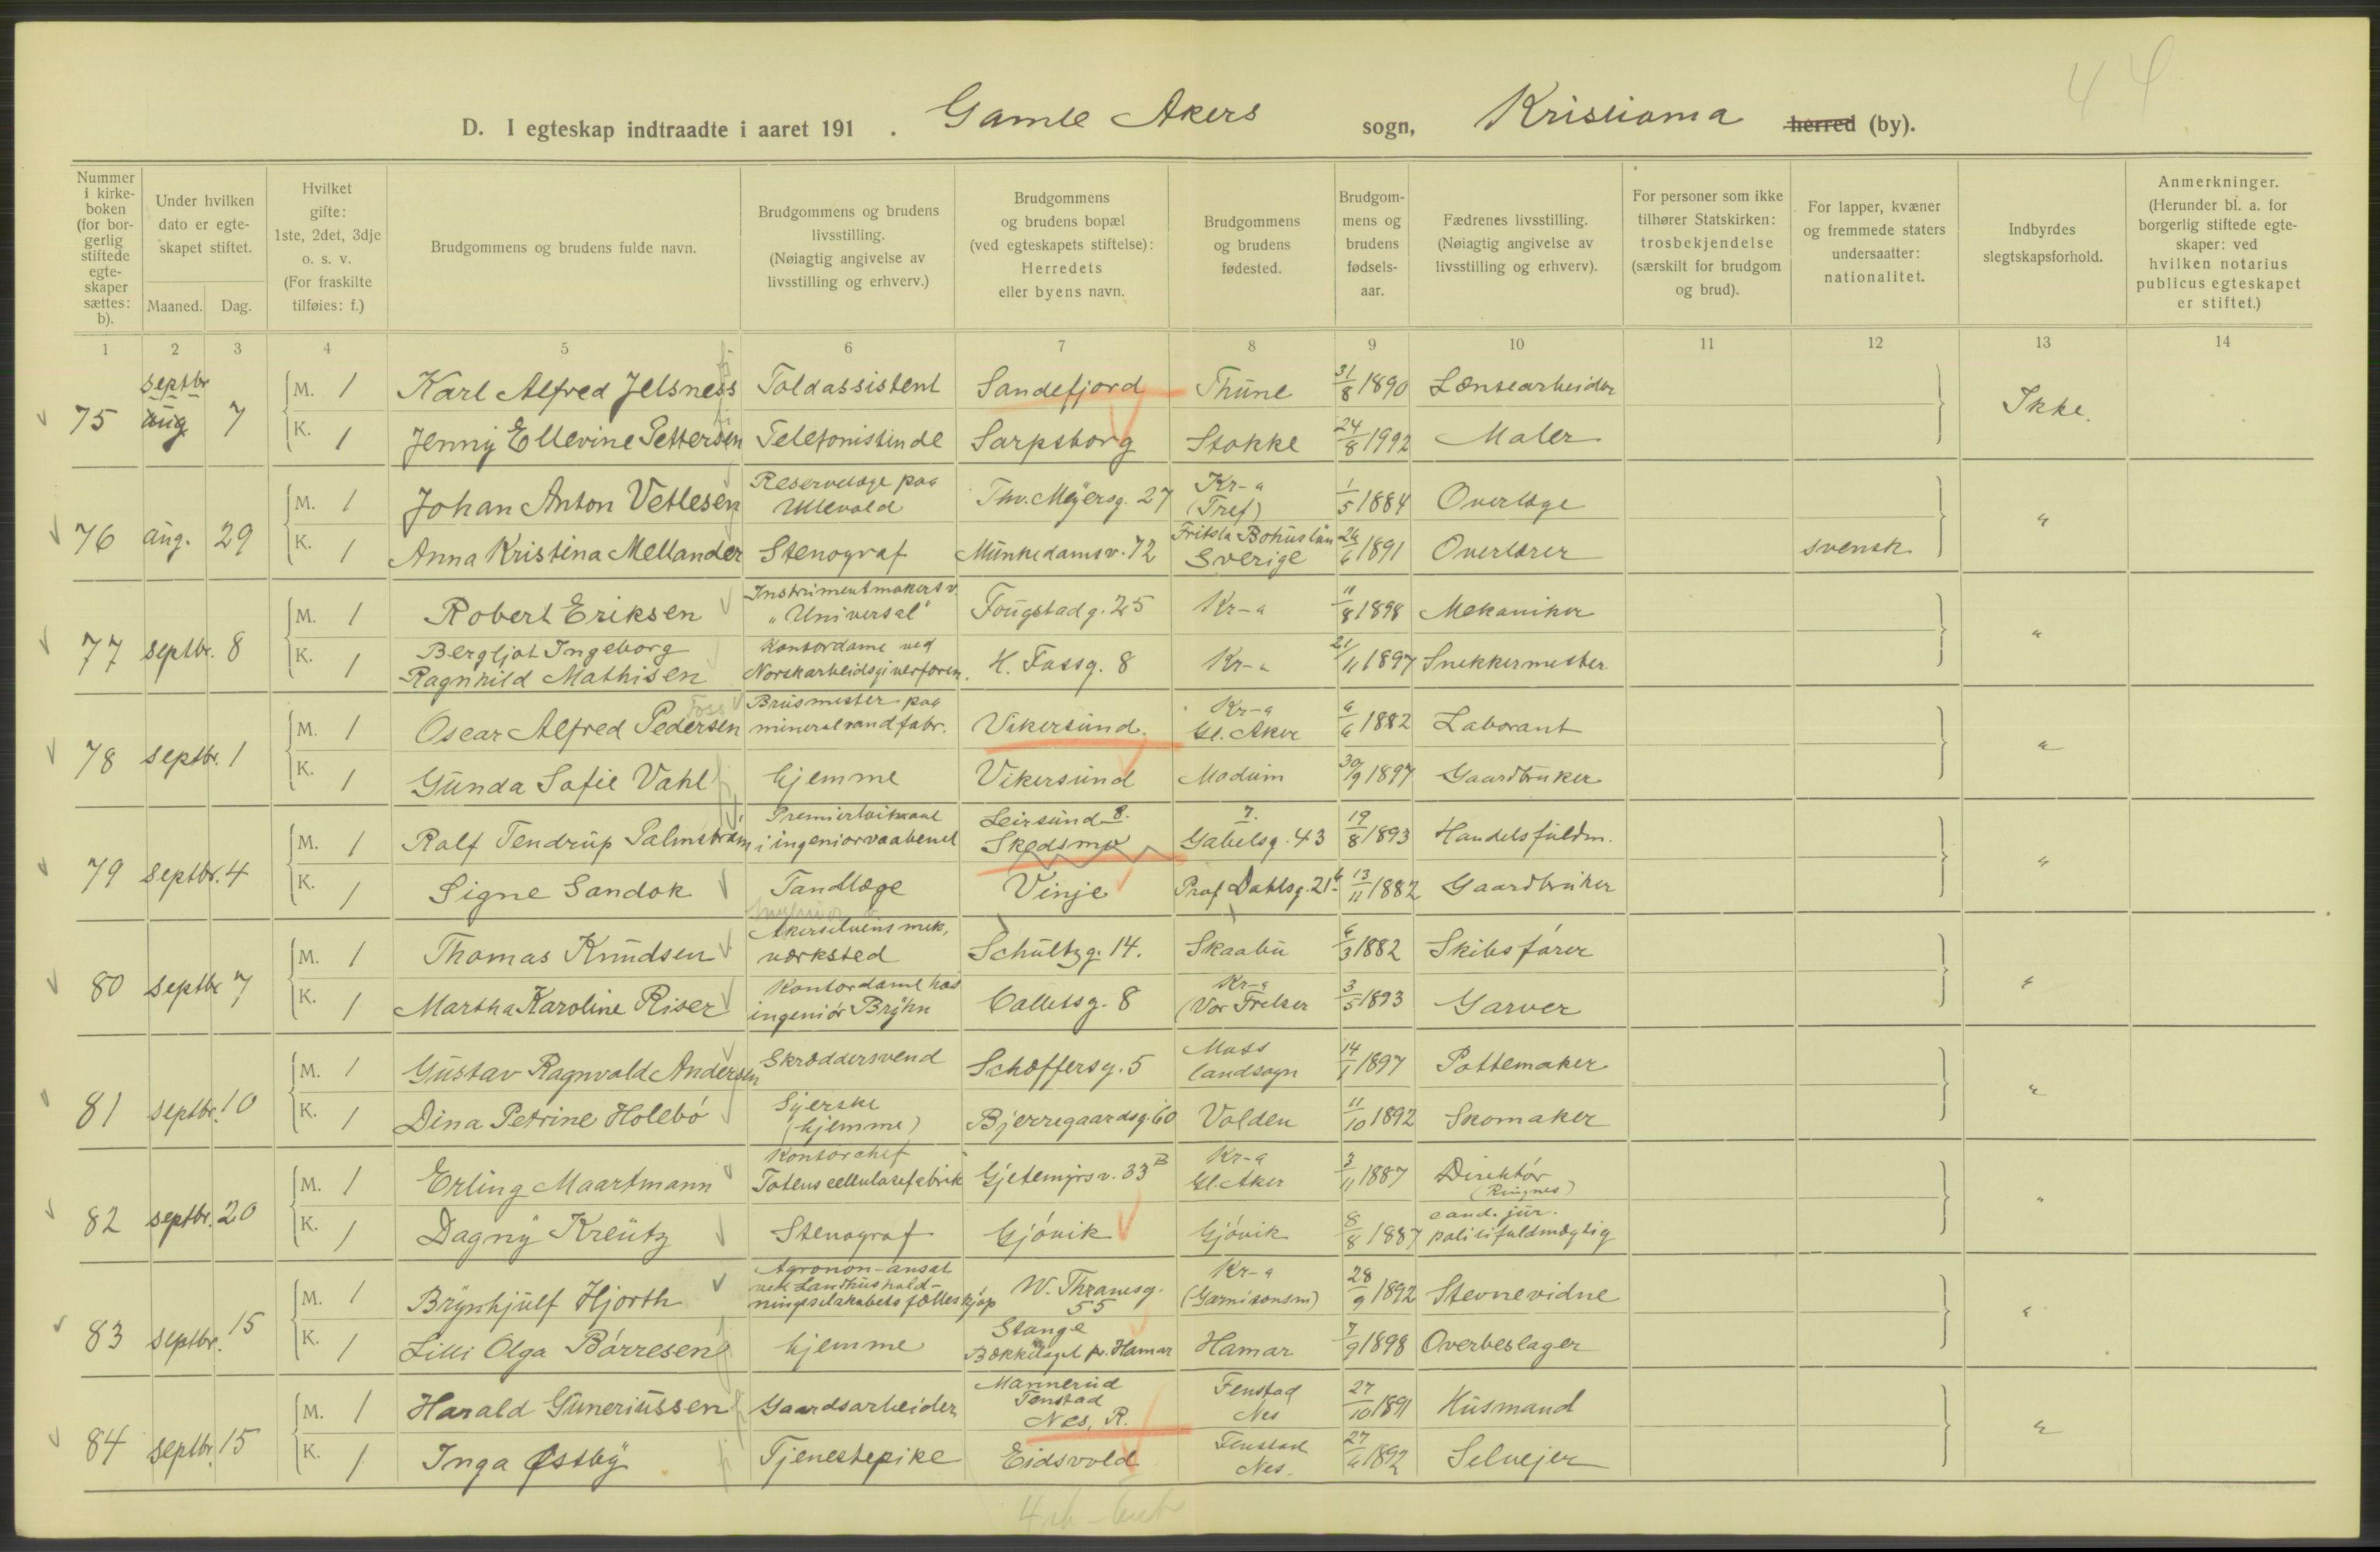 44
D. I egteskap indtraadte i aaret 191 . Gamle Akers sogn, Kristiania herred (by).
Nummer i kirke-boken (for bor-gerlig stiftede egte-skaper sættes: b).
Under hvilken dato er egte-skapet stiftet.
Maaned. Dag.
Hvilket gifte: 1ste, 2det, 3dje o. s. v. (For fraskilte tilføies: f.)
Brudgommens og brudens fulde navn.
Brudgommens og brudens livsstilling. (Nøiagtig angivelse av livsstilling og erhverv.)
Brudgommens og brudens bopæl (ved egteskapets stiftelse): Herredets eller byens navn.
Brudgommens og brudens fødested.
Brudgom-mens og brudens fødsels-aar.
Fædrenes livsstilling. (Nøiagtig angivelse av livsstilling og erhverv).
For personer som ikke tilhører Statskirken: trosbekjendelse (særskilt for brudgom og brud).
For lapper, kvæner og fremmede staters undersaatter: nationalitet.
Indbyrdes slegtskapsforhold.
Anmerkninger. (Herunder bl. a. for borgerlig stiftede egte-skaper: ved hvilken notarius publicus egteskapet er stiftet.)
1 2 3 4 5 6 7 8 9 10 11 12 13 14
75 septbr aug 7 M. 1 Karl Alfred Jelsness Toldassistent Sandefjord Thune 31/8 1890 Lænsearbeider Ikke.
K. 1 Jenny Ellevine Pettersen Telefonistinde Sarpsborg Stokke 24/8 1992 Maler
76 aug. 29 M. 1 Johan Anton Vetlesen Reservelæge paa Ullevold Thv. Meyersg. 27 Kr-a (Tref) 1/5 1884 Overlæge "
K. 1 Anna Kristina Mellander Stenograf Munkedamsv. 72 Fritsla Bohuslän Sverige 26/6 1891 Overlærer svensk
77 septbr. 8 M. 1 Robert Eriksen Instrumentmakers v. "Universal" Fougstadg. 25 Kr-a 11/8 1898 Mekaniker "
K. 1 Bergljot Ingeborg Ragnhild Mathisen Kontordame ved Norskarbeidsgiverforen. H. Fossg. 8 Kr-a 21/11 1897 Snekkermester
78 septbr. 1 M. 1 Oscar Alfred Pedersen Foss Brusmester paa mineralvandfabr. Vikersund. Kr-a Gl. Aker 6/6 1882 Laborant "
K. 1 Gunda Sofie Vahl hjemme Vikersund Modum 30/9 1897 Gaardbruker
79 septbr. 4 M. 1 Ralf Tendrup Palmstrøm Premierløitnant i ingeniørvaabenet Leirsund 8. Skedsmo 7. Gabelsg. 43 19/8 1893 Handelsfuldm. "
K. 1 Signe Sandok Tandlæge Vinje Prof Dahlsg. 21 b 13/11 1882 Gaardbruker
80 septbr 7 M. 1 Thomas Knudsen Akerselvens mek. værksted Schultzg. 14. Skaabu 6/3 1882 Skibsfører "
K. 1 Martha Karoline Riser Kontordame hos ingeniør Bryhn Calletsg. 8 Kr-a (Vor Frelser 3/5 1893 Garver
81 septbr. 10 M. 1 Gustav Ragnvald Andersen Skræddersvend Schøffersg. 5 Moss landsogn 14/1 1897 Pottemaker "
K. 1 Dina Petrine Holebø Syerske (hjemme) Bjerregaardsg. 60 Volden 11/10 1892 Skomaker
82 septbr. 20 M. 1 Erling Maartmann Kontorchef Totens cellulosefabrik Gjetemyrsv. 33 B Kr-a Gl. Aker 3/11 1887 Direktør (Ringnes) "
K. 1 Dagny Kreutz Stenograf Gjøvik Gjøvik 8/8 1887 cand. jur. politifuldmægtig
83 septbr. 15 M. 1 Brynhjulf Hjorth Agronom-ansat ved Landhushold-ningsselskabets fælleskjøp W. Thranesg. 55 Kr-a (Garnisonsm) 28/9 1892 Stevnevidne "
K. 1 Lilli Olga Børresen hjemme Stange Bækkelaget pr. Hamar Hamar 7/9 1898 Overbeslager
84 septbr. 15 M. 1 Harald Guneriussen Gaardsarbeider Mannerud Fenstad Nes, R. Fenstad Nes 27/10 1891 Husmand "
K. 1 Inga Østby Tjenestepike Eidsvold Fenstad Nes. 27/6 1892 Selveier